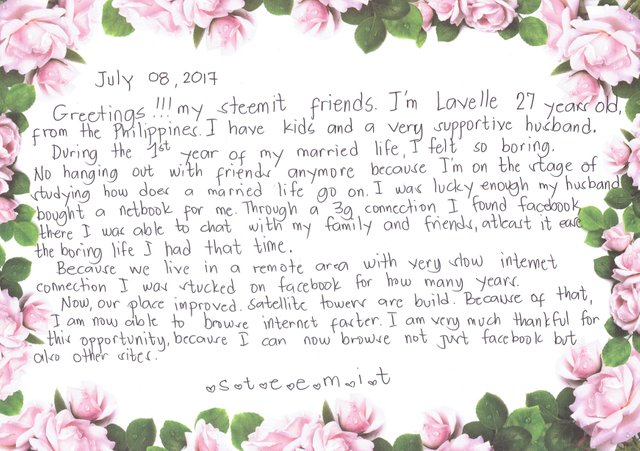 July 08, 2017
Greetings!!! my steemit friends. I'm Lavelle 27 years old,
from the Philippines. I have kids and a very supportive husband.
During the 1st year of my married life, I felt so boring.
No hanging out with friends anymore because I'm on the stage of
studying how does a married life go on. I was lucky enough my husband
bought a netbook for me. Through a 3g connection I found facebook
there I was able to chat with my family and friends, atleast it ease
the boring life I had that time.
Because we live in a remote area with very slow internet
connection I was stucked on facebook for how many years.
Now, our place improved. satellite towers are build. Because of that,
I am now able to browse internet faster. I am very much thankful for
this opportunity, because I can now browse not just facebook but
also other sites.
s.t.e.e.m.i.t